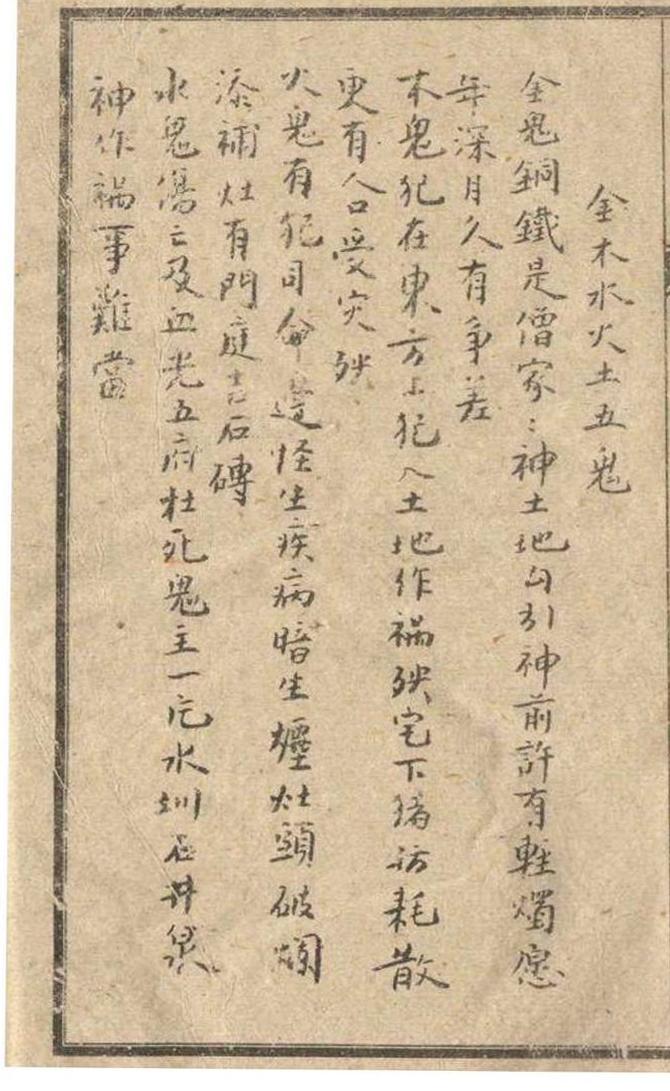 金木水火土五鬼
金鬼銅鐵是僧家：神土地勾引神前許有輕燭愿
年深月久有争差
木鬼犯在東方上犯人土地作禍殃宅下耗散
更有人口受灾殃
火鬼有犯司命邊怪生疾病暗生灶頭破爛
添補灶有門庭石磚
水鬼傷亡及血光五府杜死鬼主一水圳石井泉
神作禍事難當